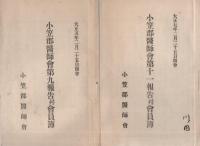 大正七年二月二十五日開會
小笠郡醫師會第十一報告並會員簿
小笠郡醫師會
大正五年二月二十五日開會
小笠郡醫師會第九報告並會員簿
小笠郡醫師會